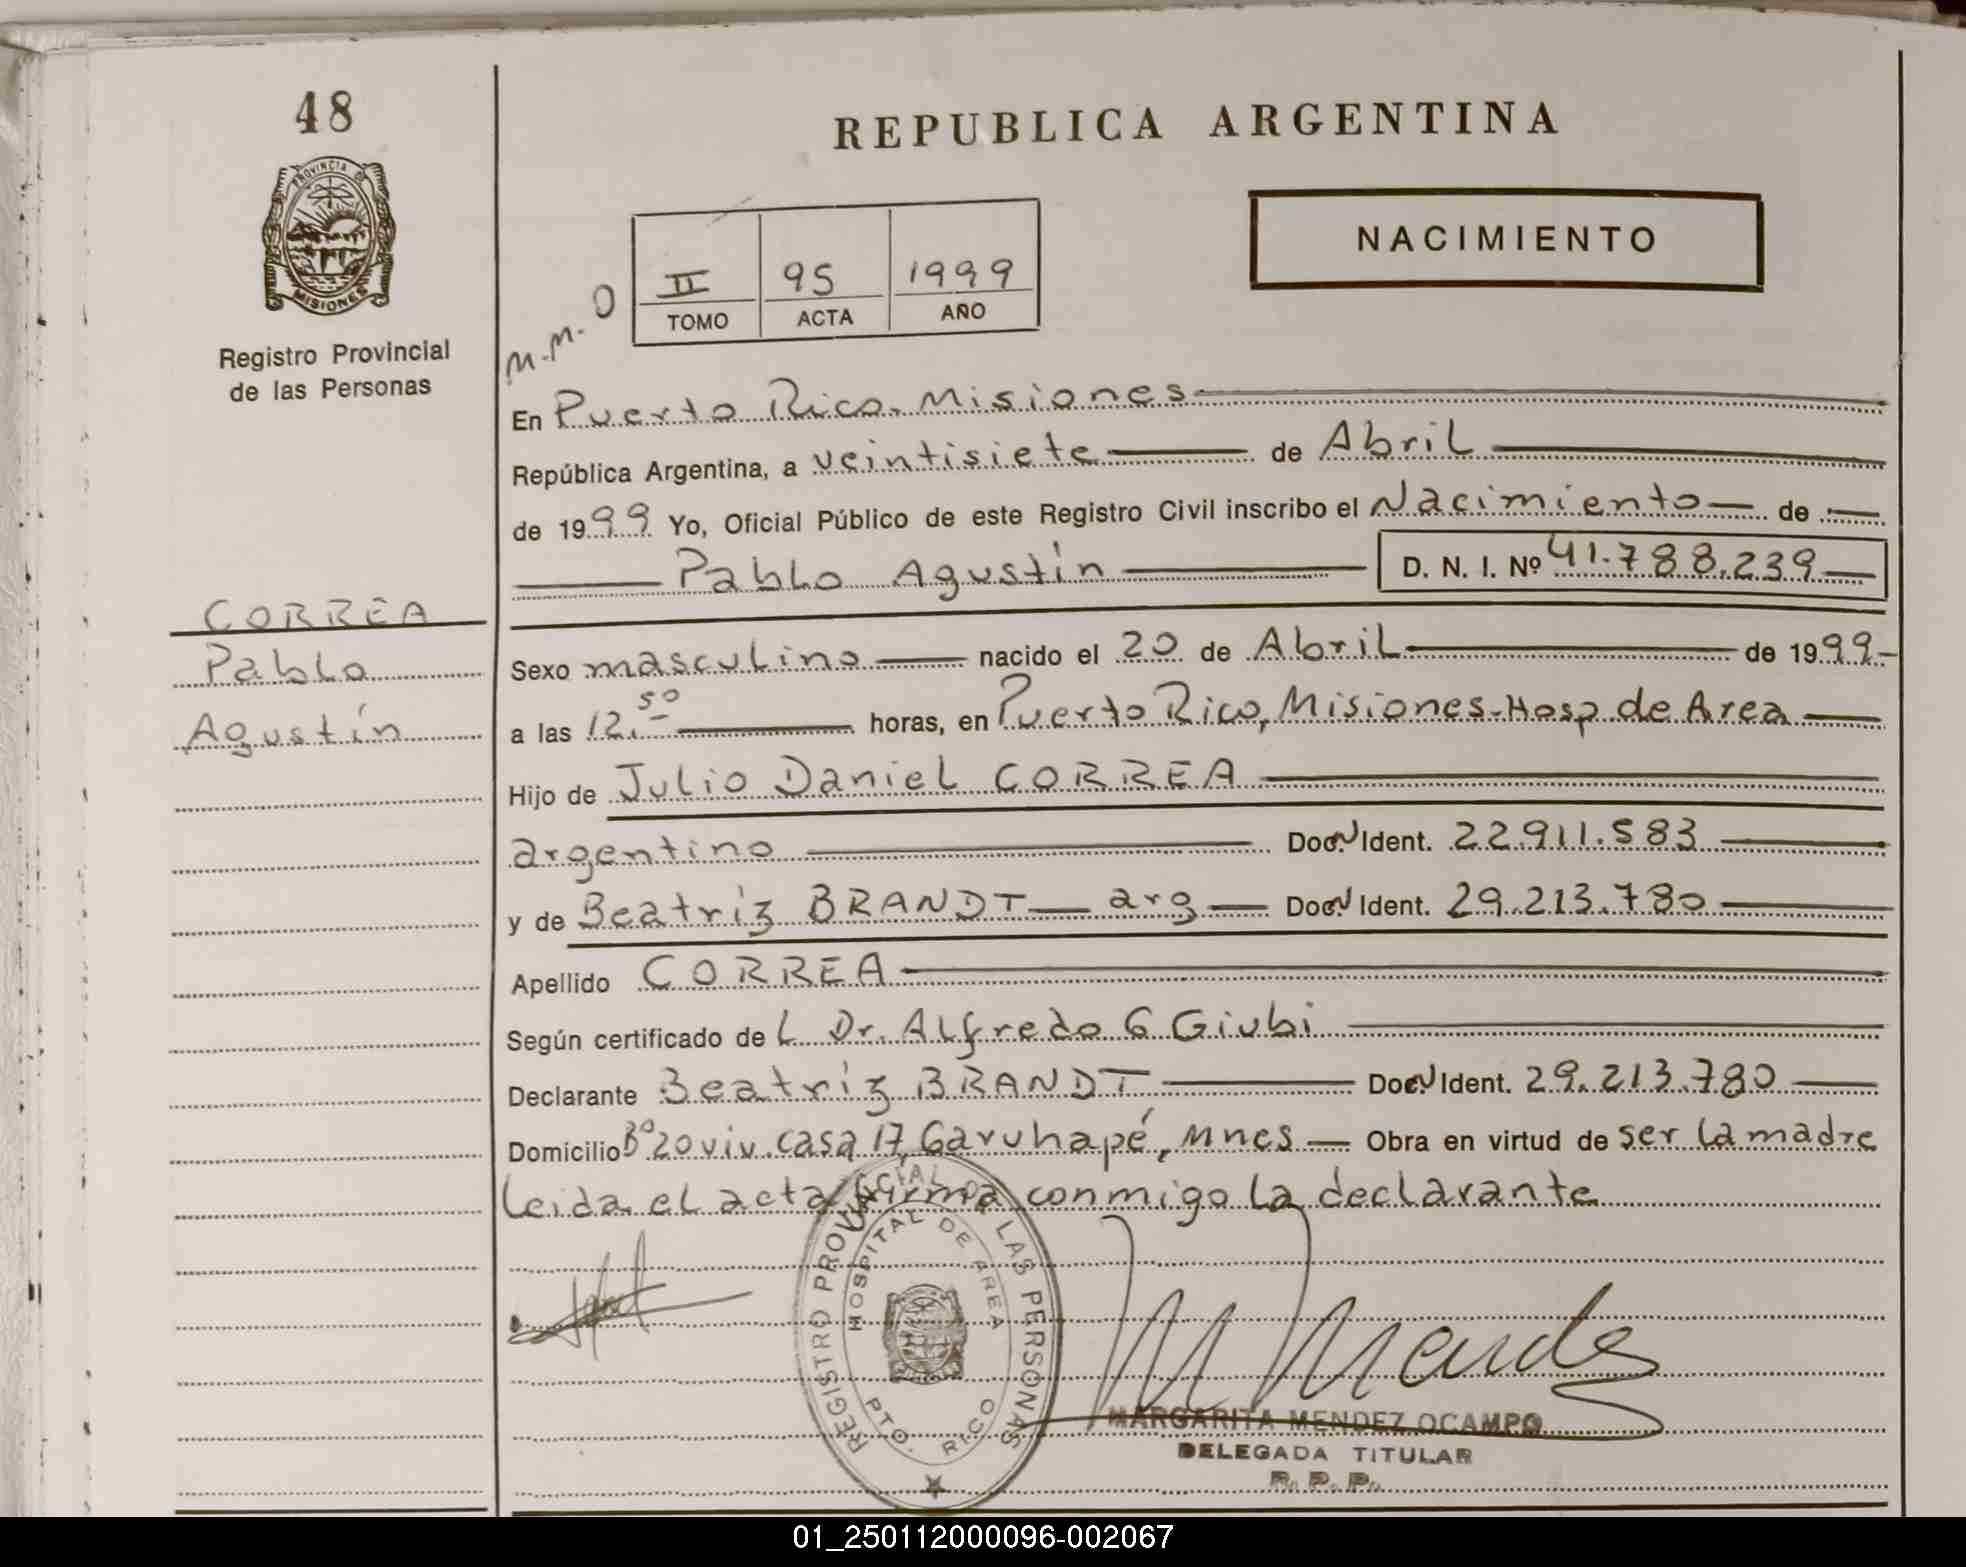 48
REPUBLICA ARGENTINA
PROVINCIA DE
MISIONES
NACIMIENTO
II 95 1999
TOMO ACTA AÑO
M.M. O
Registro Provincial
de las Personas
En Puerto Rico. Misiones
República Argentina, a veintisiete de Abril
de 1999 Yo, Oficial Público de este Registro Civil inscribo el Nacimiento de
Pablo Agustín D. N. I. Nº 41.788.239
CORREA
Pablo
Agustín
Sexo masculino nacido el 20 de Abril de 1999
a las 12.50 horas, en Puerto Rico, Misiones-Hosp de Area
Hijo de Julio Daniel CORREA
argentino Doc. Ident. 22.911.583
y de Beatríz BRANDT arg Doc. Ident. 29.213.780
Apellido CORREA
Según certificado de L Dr. Alfredo G Giubi
Declarante Beatríz BRANDT Doc. Ident. 29.213.780
Domicilio Bº 20 viv. casa 17, Garuhapé, Mnes Obra en virtud de ser la madre
leida el acta firma conmigo la declarante
REGISTRO PROVINCIAL DE LAS PERSONAS
HOSPITAL DE AREA
PTO. RICO
M Mendez
MARGARITA MENDEZ OCAMPO
DELEGADA TITULAR
R. P. P.
01_250112000096-002067